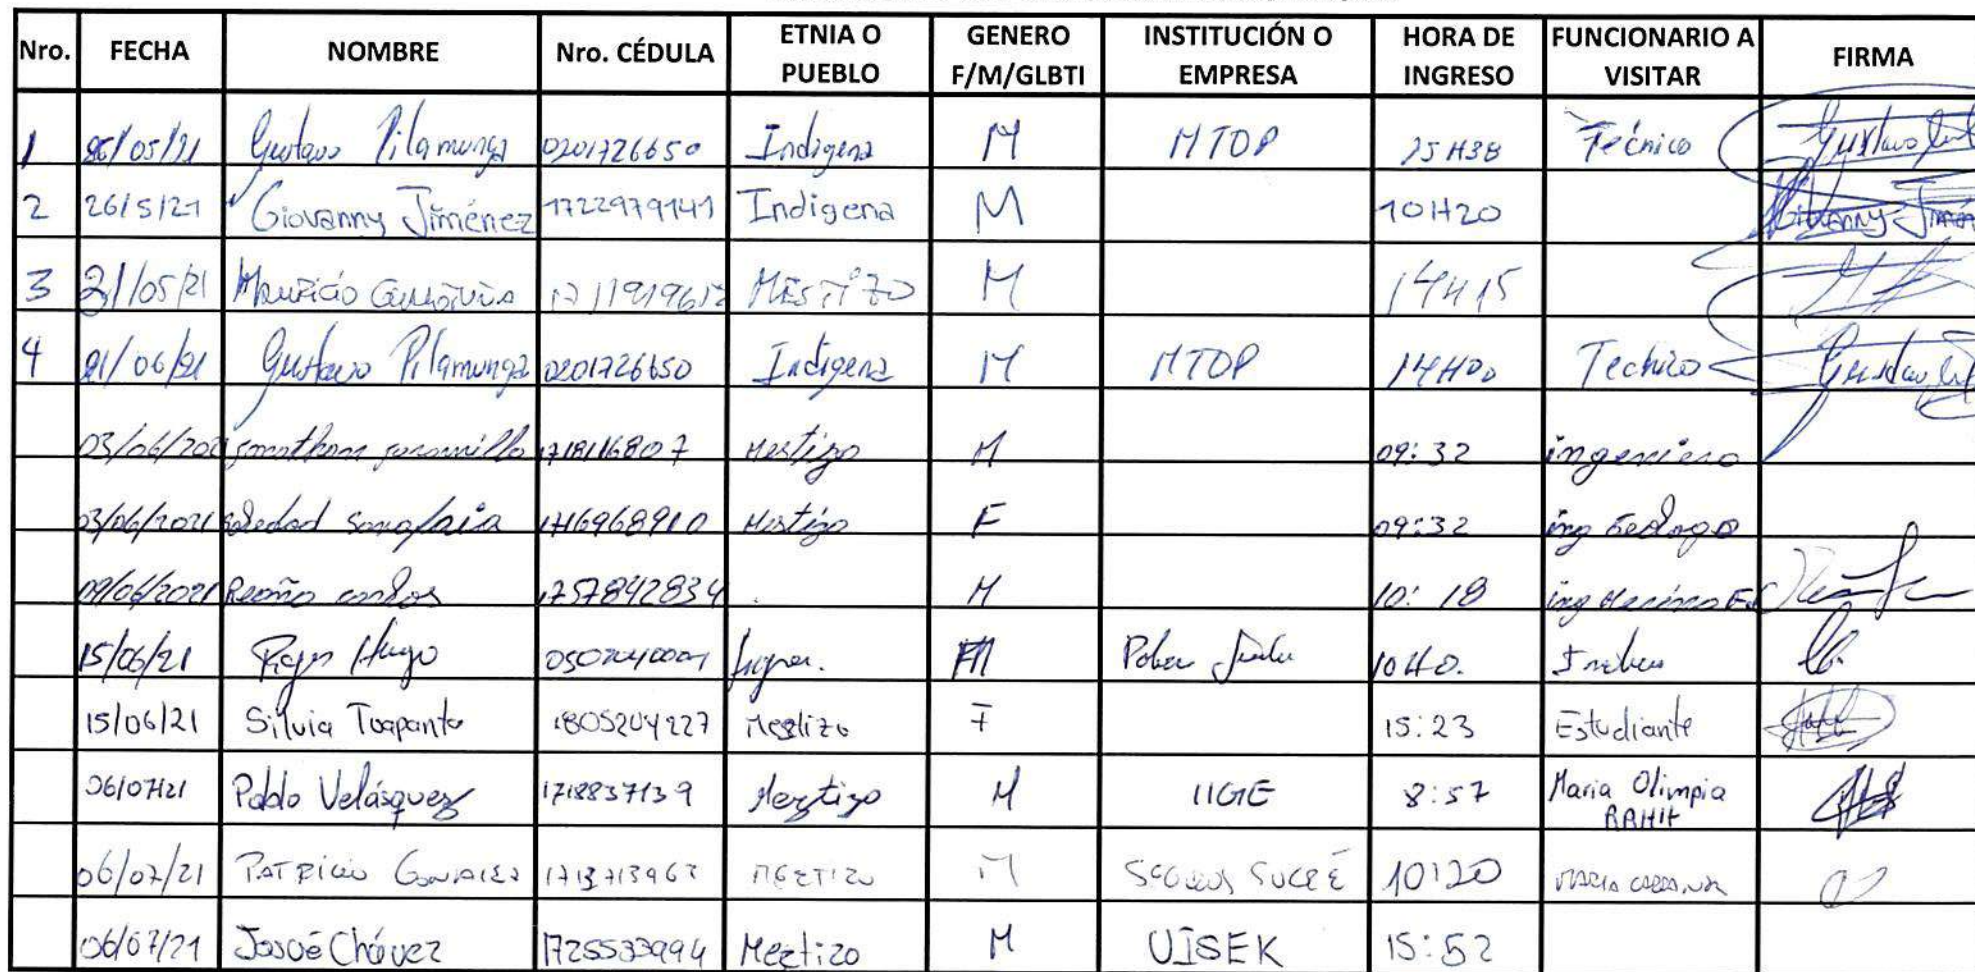 Nro. FECHA NOMBRE Nro. CÉDULA ETNIA O PUEBLO GENERO F/M/GLBTI INSTITUCIÓN O EMPRESA HORA DE INGRESO FUNCIONARIO A VISITAR FIRMA
1 26/05/21 Gustavo Pilamunga 0201726650 Indigena M MTOP 15H38 Técnico Gustavo
2 26/5/21 Giovanny Jiménez 1722979141 Indigena M 10H20 Giovanny Jimén
3 31/05/21 Mauricio MESTIZO M 14H15
4 01/06/21 Gustavo Pilamunga 0201726650 Indigena M MTOP 14H00 Gustavo
03/06/202 Jonathan Jaramillo 1718116807 Mestizo M 09:32 ingeniero
03/06/2021 Soledad 1716968910 Mestizo F 09:32 ing Geólogo
09/06/2021 Carlos 1757842834 M 10:18 ing
15/06/21 Hugo M 10H0.
15/06/21 Silvia Toapanta 1805204227 Mestizo F 15:23 Estudiante
06/07/21 Pablo Velásquez 1718837139 Mestizo M IIGE 8:57 Maria Olimpia RRHH
06/07/21 PATRICIO GONZALEZ 1713713963 MESTIZO M SEGUROS SUCRE 10:20 MARIA
06/07/21 Josué Chávez 1725533994 Mestizo M UISEK 15:52